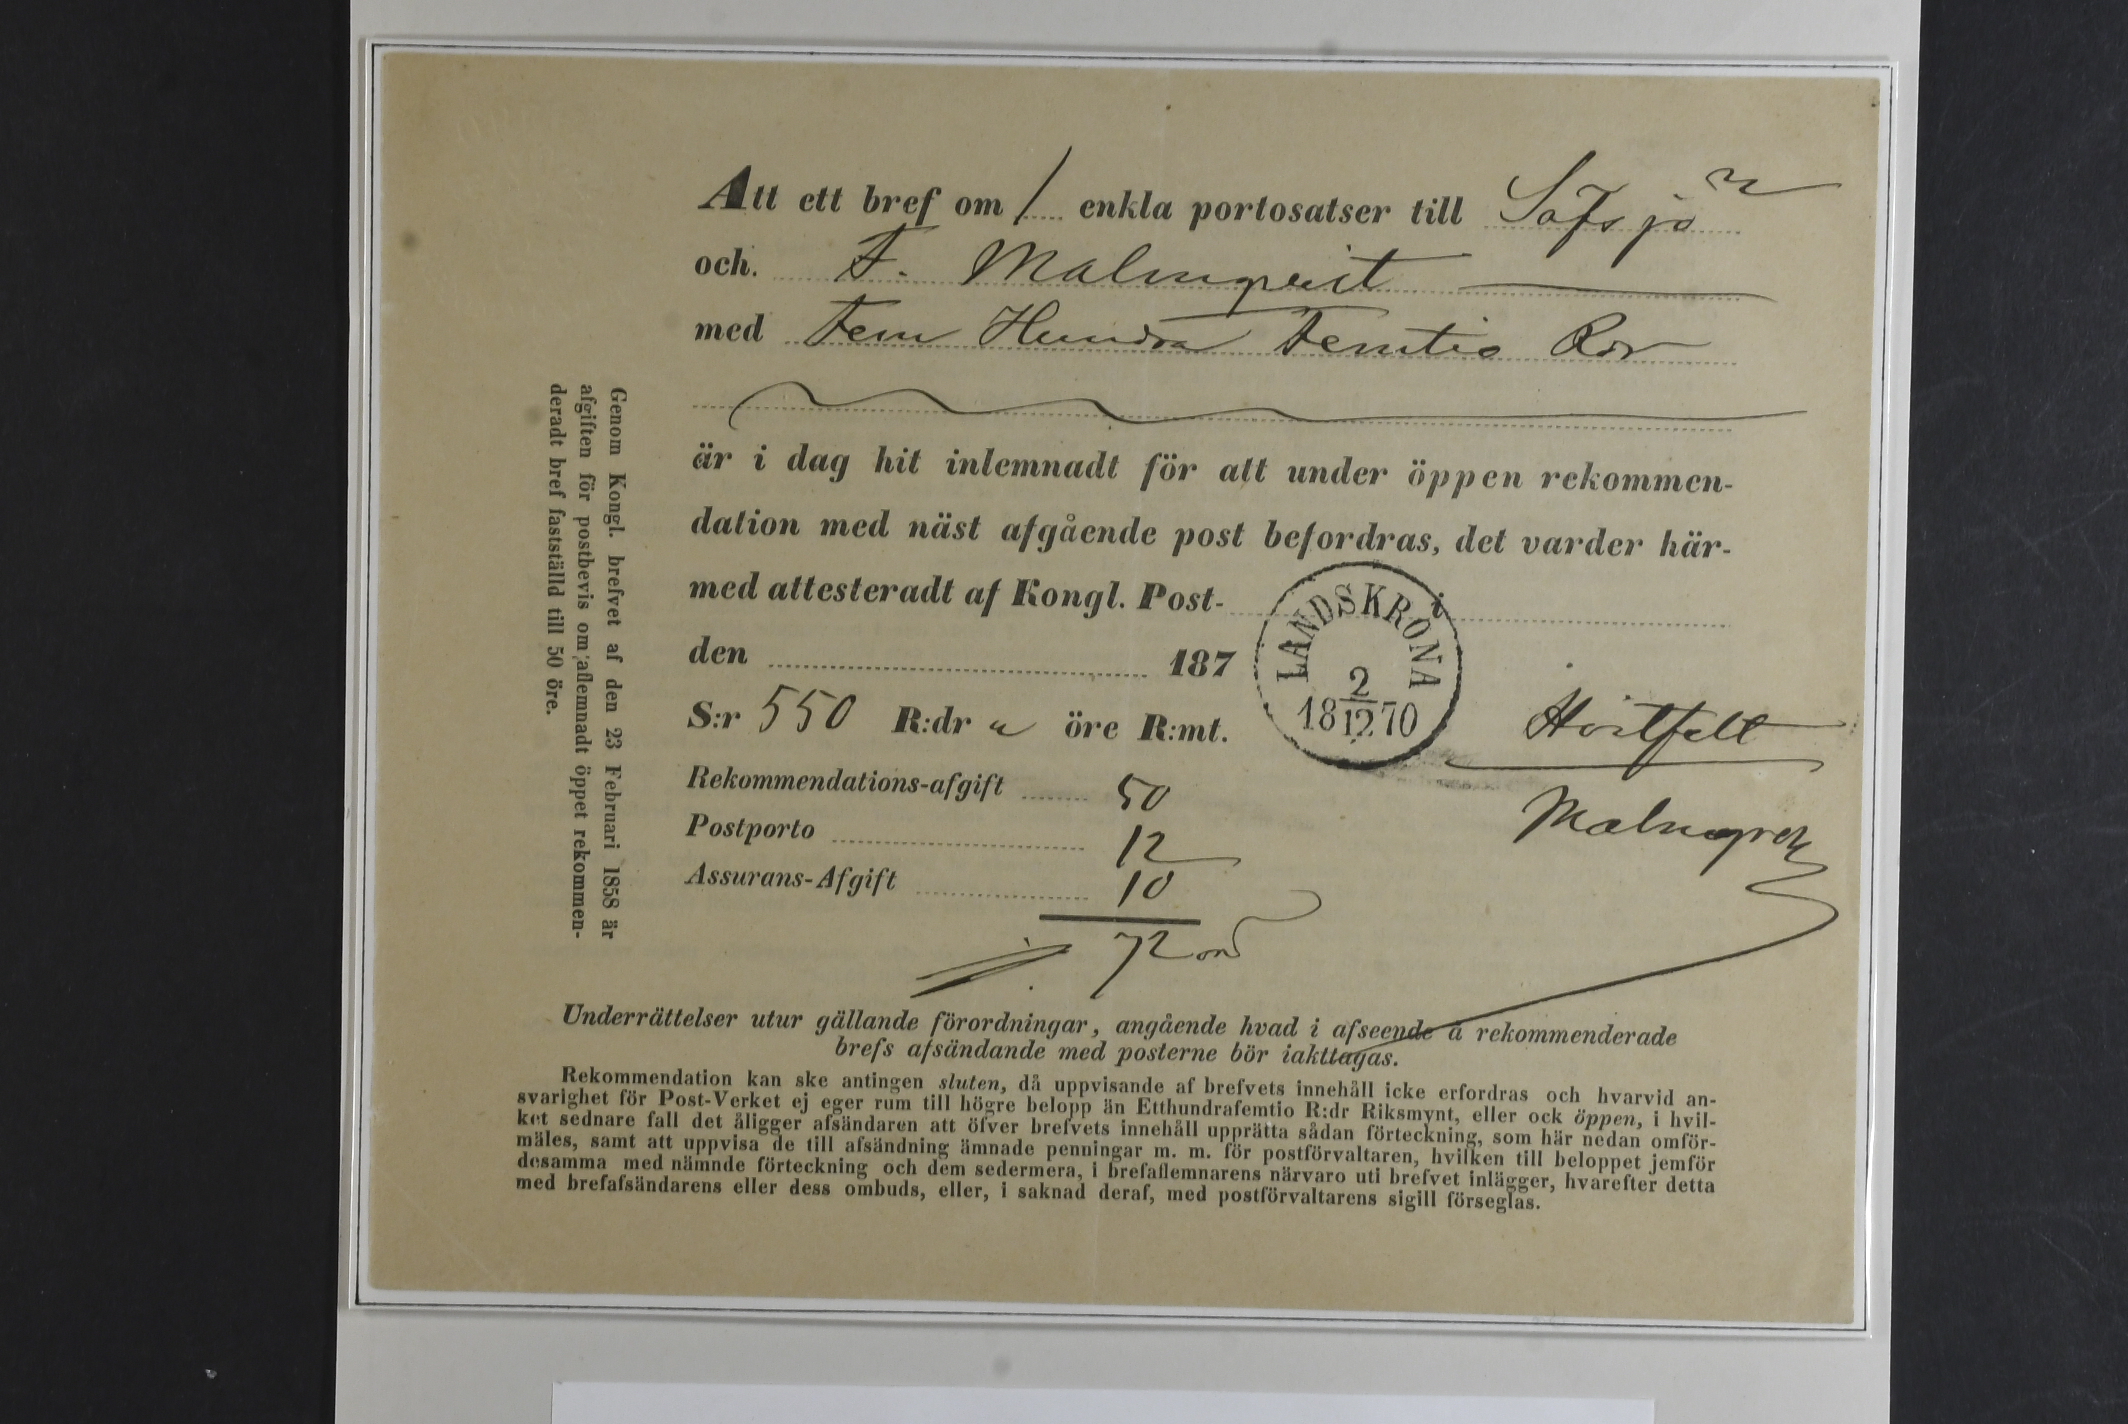 Att ett bref om / enkla portosatser till Säfsjö
och. F. Malmqvist
med Fem Hundra Femtio Rdr
är i dag hit inlemnadt för att under öppen rekommen-
dation med näst afgående post befordras, det varder här-
med attesteradt af Kongl. Post-
LANDSKRONA
2
18 12 70
den 187
S:r 550 R:dr " öre R:mt.
Rekommendations-afgift 50
Postporto 12
Assurans-Afgift 10
72
Genom Kongl. brefvet af den 23 Februari 1858 är
afgiften för postbevis om aflemnadt öppet rekommen-
deradt bref fastställd till 50 öre.
Underrättelser utur gällande förordningar, angående hvad i afseende å rekommenderade
brefs afsändande med posterne bör iakttagas.
Rekommendation kan ske antingen sluten, då uppvisande af brefvets innehåll icke erfordras och hvarvid an-
svarighet för Post-Verket ej eger rum till högre belopp än Etthundrafemtio R:dr Riksmynt, eller ock öppen, i hvil-
ket sednare fall det åligger afsändaren att öfver brefvets innehåll upprätta sådan förteckning, som här nedan omför-
mäles, samt att uppvisa de till afsändning ämnade penningar m. m. för postförvaltaren, hvilken till beloppet jemför
desamma med nämnde förteckning och dem sedermera, i brefaflemnarens närvaro uti brefvet inlägger, hvarefter detta
med brefafsändarens eller dess ombuds, eller, i saknad deraf, med postförvaltarens sigill förseglas.